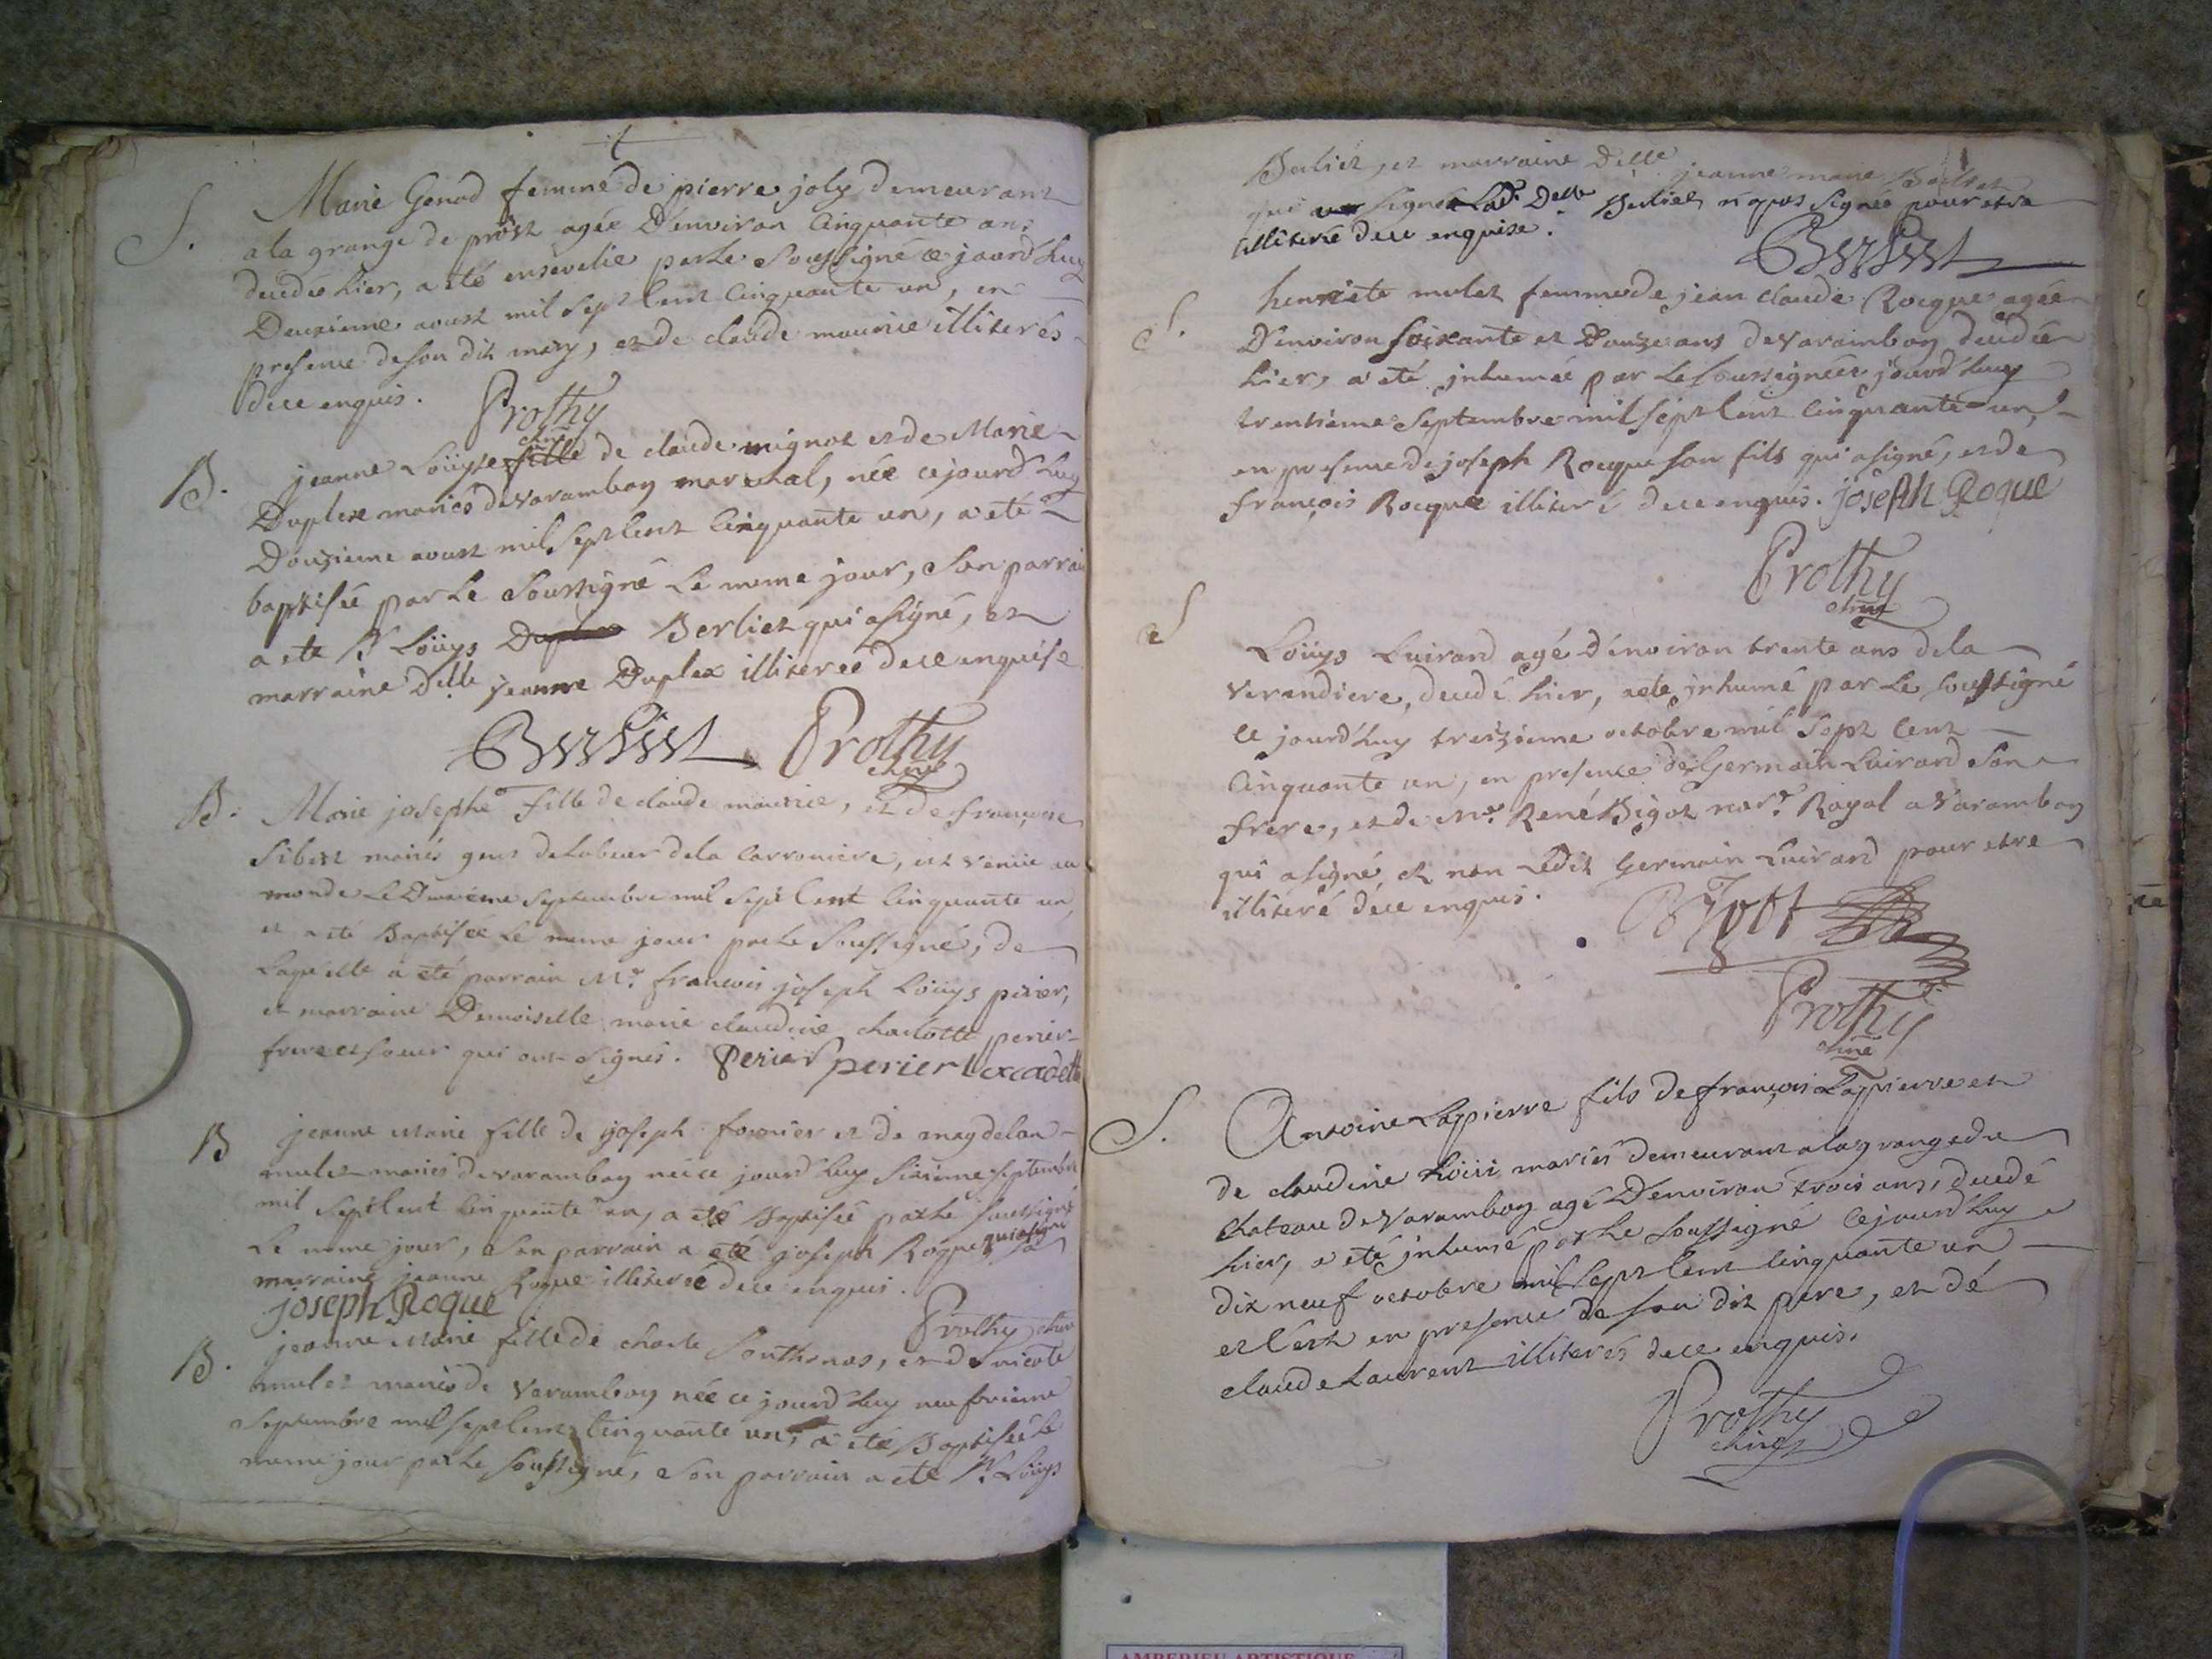 S. Marie Genod femme de pierre joly demeurant
a la grange de prost agée D'environ Cinquante ans
decedée hier, a été ensevelie par Le Soussigné ce jourd'huy
Deuxieme aoust mil sept Cent Cinquante un, en
presence de son dit mary, et de claude maurice illiterés
de ce enquis.
Prothy
curé
B. jeanne Loüyse fille de claude mignot et de Marie
Duplex mariés de varambon marechal, née ce jourd'huy
Douzieme aoust mil sept Cent Cinquante un, a eté
baptisée par Le Soussigné Le meme jour, Son parrain
a ete Sr Loüys Berliet qui a signé, et
marraine Delle jeanne Duplex illiterée de ce enquise
Berliet Prothy
curé
B. Marie josephe fille de claude maurice, et de françoise
Sibert mariés gens de Labeur de la Carroniere, est venue au
monde Le Deuxieme Septembre mil sept Cent Cinquante un,
et a été Baptisée Le meme jour par Le Soussigné, de
Laquelle a eté parrain Mr. francois joseph Loüys perier,
et marraine Demoiselle marie claudine charlotte perier
frere et soeur qui ont signés. Perier perier La cadette
B jeanne Marie fille de joseph fornier et de magdelon
mulet mariés de varambon née ce jourd'huy Sixieme Septembre
mil Sept Cent Cinquante un, a eté Baptisée par Le soussigné
Le meme jour, Son parrain a eté joseph Roque qui a signé sa
marraine jeanne Roque illiterée de ce enquis.
joseph Roque
Prothy curé
B. jeanne Marie fille de charle Southonas, et de nicole
mulet mariés de Varambon née ce jourd'huy neufvieme
Septembre mil sept Cent Cinquante un, a eté Baptisée Le
meme jour par Le soussigné, Son parrain a eté Sr. Loüys
Berliet, et marraine Delle jeanne marie Berliet
qui signé Lad. Delle Berliet n'a pas signé pour etre
illiterée de ce enquise.
Berliet
S. henriete mulet femme de jean claude Rocque agée
D'environ soixante et Douze ans de Varambon decedée
hier, a eté jnhumée par Le Soussigné ce jourd'huy
trentieme Septembre mil sept Cent Cinquante un,
en presence de joseph Rocque son fils qui a signé, et de
françois Rocque illiteré de ce enquis. joseph Roque
Prothy
curé
S Loüys Luirard agé d'environ trente ans de la
verandiere, decedé hier, a ete jnhumé par Le soussigné
ce jourd'huy treizieme octobre mil Sept Cent
Cinquante un, en presence de Germain Luirard Son
frere, et de Mr. René Bigot nore. Royal a Varambon
qui a signé, et non Ledit Germain Luirard pour etre
illiteré de ce enquis.
Bigott
Prothy
curé
S. Antoine Lapierre fils de francois Lapierre et
de claudine mariés demeurant a la grange du
chateau de Varambon agé D'environ trois ans, decedé
hier, a eté jnhumé par Le Soussigné ce jourd'huy
dix neuf octobre mil Sept Cent Cinquante un
et C'est en presence de son dit pere, et de
claude Laurent illiterés de ce enquis.
Prothy
curé
AMBERIEU ARTISTIQUE